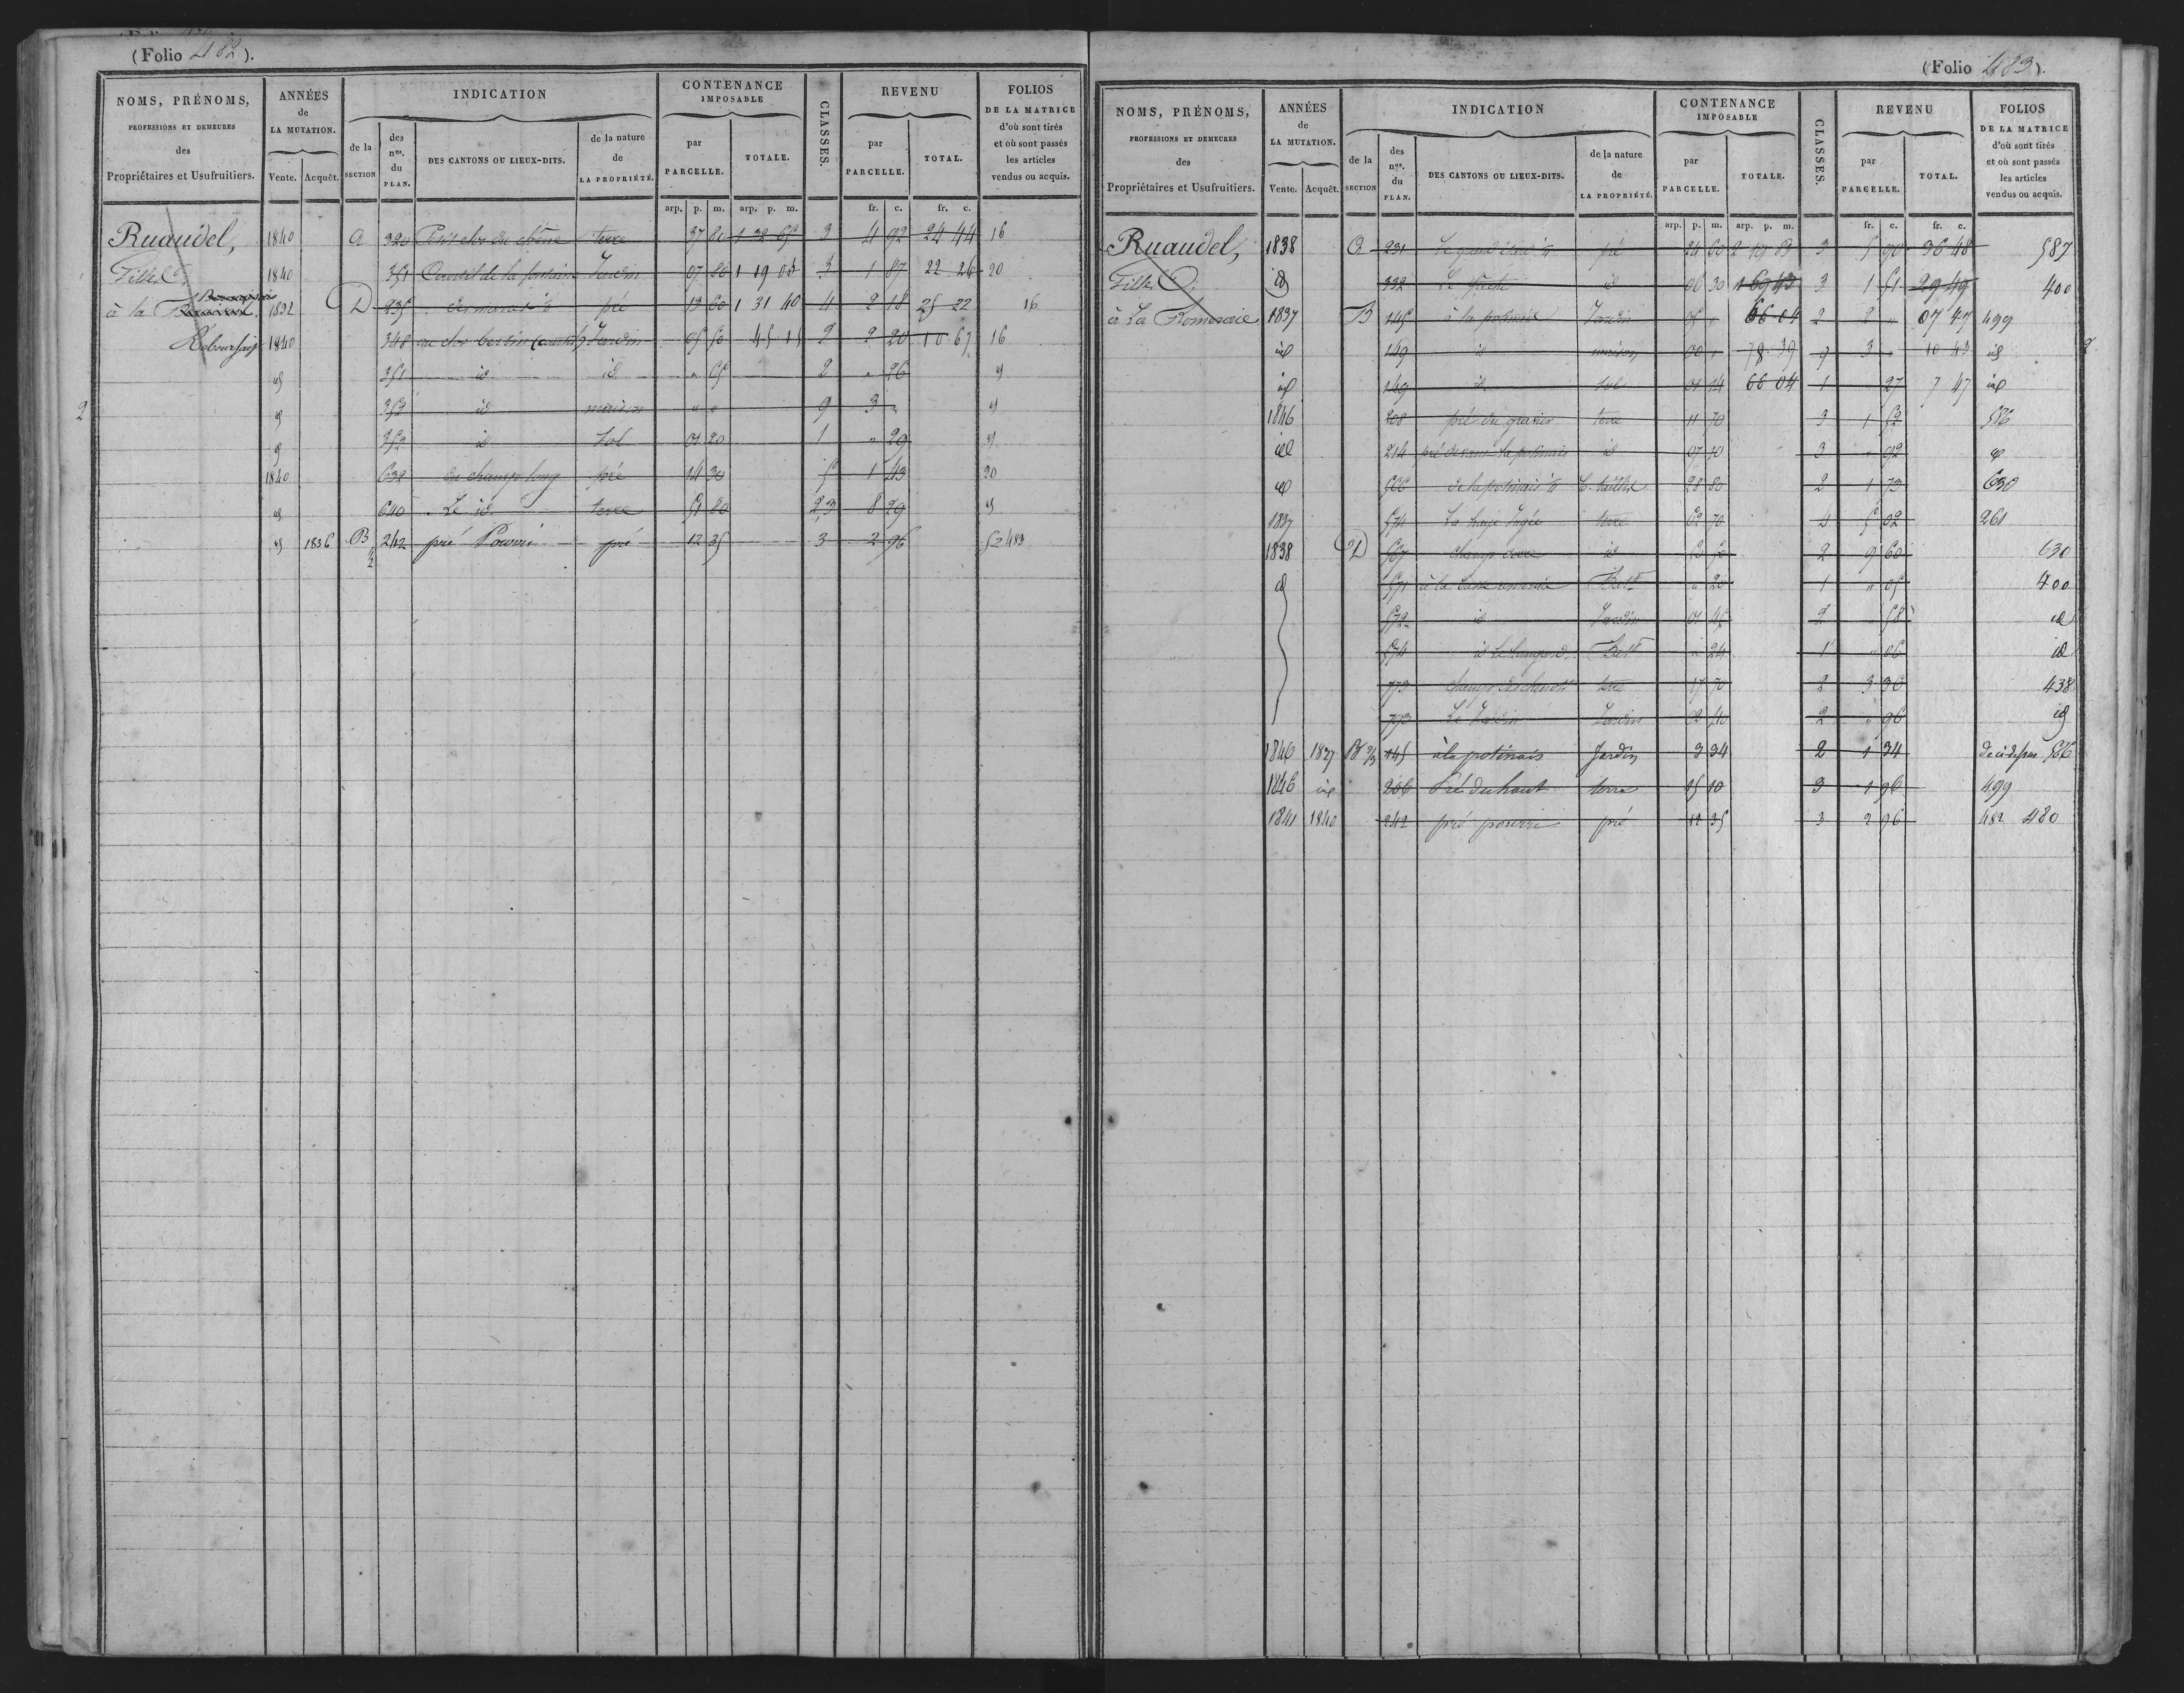 (Folio 482).
NOMS, PRÉNOMS, PROFESSIONS ET DEMEURES des Propriétaires et Usufruitiers.
ANNÉES de LA MUTATION. Vente. Acquêt.
INDICATION de la SECTION des nos. du PLAN. DES CANTONS OU LIEUX-DITS. de la nature de LA PROPRIÉTÉ.
CONTENANCE IMPOSABLE par PARCELLE. TOTALE.
CLASSES.
REVENU par PARCELLE. TOTAL.
FOLIOS DE LA MATRICE d'où sont tirés et où sont passés les articles vendus ou acquis.
arp. p. m. arp. p. m. fr. c. fr. c.
Ruaudel, 1840 A 320 Petit clos du chêne terre 37 80 1 32 65 3 4 92 24 44 16
Fille 1840 351 de la fontaine Jardin 07 80 1 19 05 3 1 87 22 26 20
à la 1832 D 235 pré 13 60 1 31 40 4 2 18 25 22 16
1840 348 Jardin 05 50 45 15 2 2 20 10 67 16
id 351 id id " 65 2 " 26 id
2 id 353 id maison " " 9 3 " id
id 352 id Sol 01 20 1 " 29 id
1840 632 du champ long pré 14 30 5 1 43 20
id 640 Le id terre 51 80 2,3 8 29 id
id 1836 B 242 pré Pourri pré 12 35 3 2 96 483
(Folio 483).
NOMS, PRÉNOMS, PROFESSIONS ET DEMEURES des Propriétaires et Usufruitiers.
ANNÉES de LA MUTATION. Vente. Acquêt.
INDICATION de la SECTION des nos. du PLAN. DES CANTONS OU LIEUX-DITS. de la nature de LA PROPRIÉTÉ.
CONTENANCE IMPOSABLE par PARCELLE. TOTALE.
CLASSES.
REVENU par PARCELLE. TOTAL.
FOLIOS DE LA MATRICE d'où sont tirés et où sont passés les articles vendus ou acquis.
arp. p. m. arp. p. m. fr. c. fr. c.
Ruaudel, 1838 231 pré 24 60 2 19 83 3 5 90 36 48 587
Fille id 332 id 06 30 1 69 43 3 1 51 29 49 400
à La Romeraie 1837 B 145 à la potinais Jardin 05 " 66 04 2 2 " 07 47 499
id 149 id maison 00 " 78 39 9 3 " 10 43 id 2
id 149 id Sol 01 14 66 04 1 " 27 7 47 id
1846 208 pré du gravier terre 11 70 3 1 52 586
id 214 pré devant la potinais id 07 10 3 " 92 id
id 566 de la potinais 28 80 2 1 73 630
1837 574 La haie terre 62 70 4 5 02 261
1838 D 567 champ id 50 50 2 9 60 630
id 571 à la Bat. " 20 1 " 05 400
572 id Jardin 01 45 2 " 58 id
574 id Bat. " 24 1 " 06 id
773 champ terre 17 70 2 3 36 438
793 Le Jardin Jardin 02 40 2 " 96 id
1846 1837 B 2/3 145 à la potinais Jardin 3 34 2 1 34 586
1846 id 206 Pré du haut terre 15 10 3 1 96 499
1841 1840 242 pré pourri pré 12 35 3 2 96 482 480